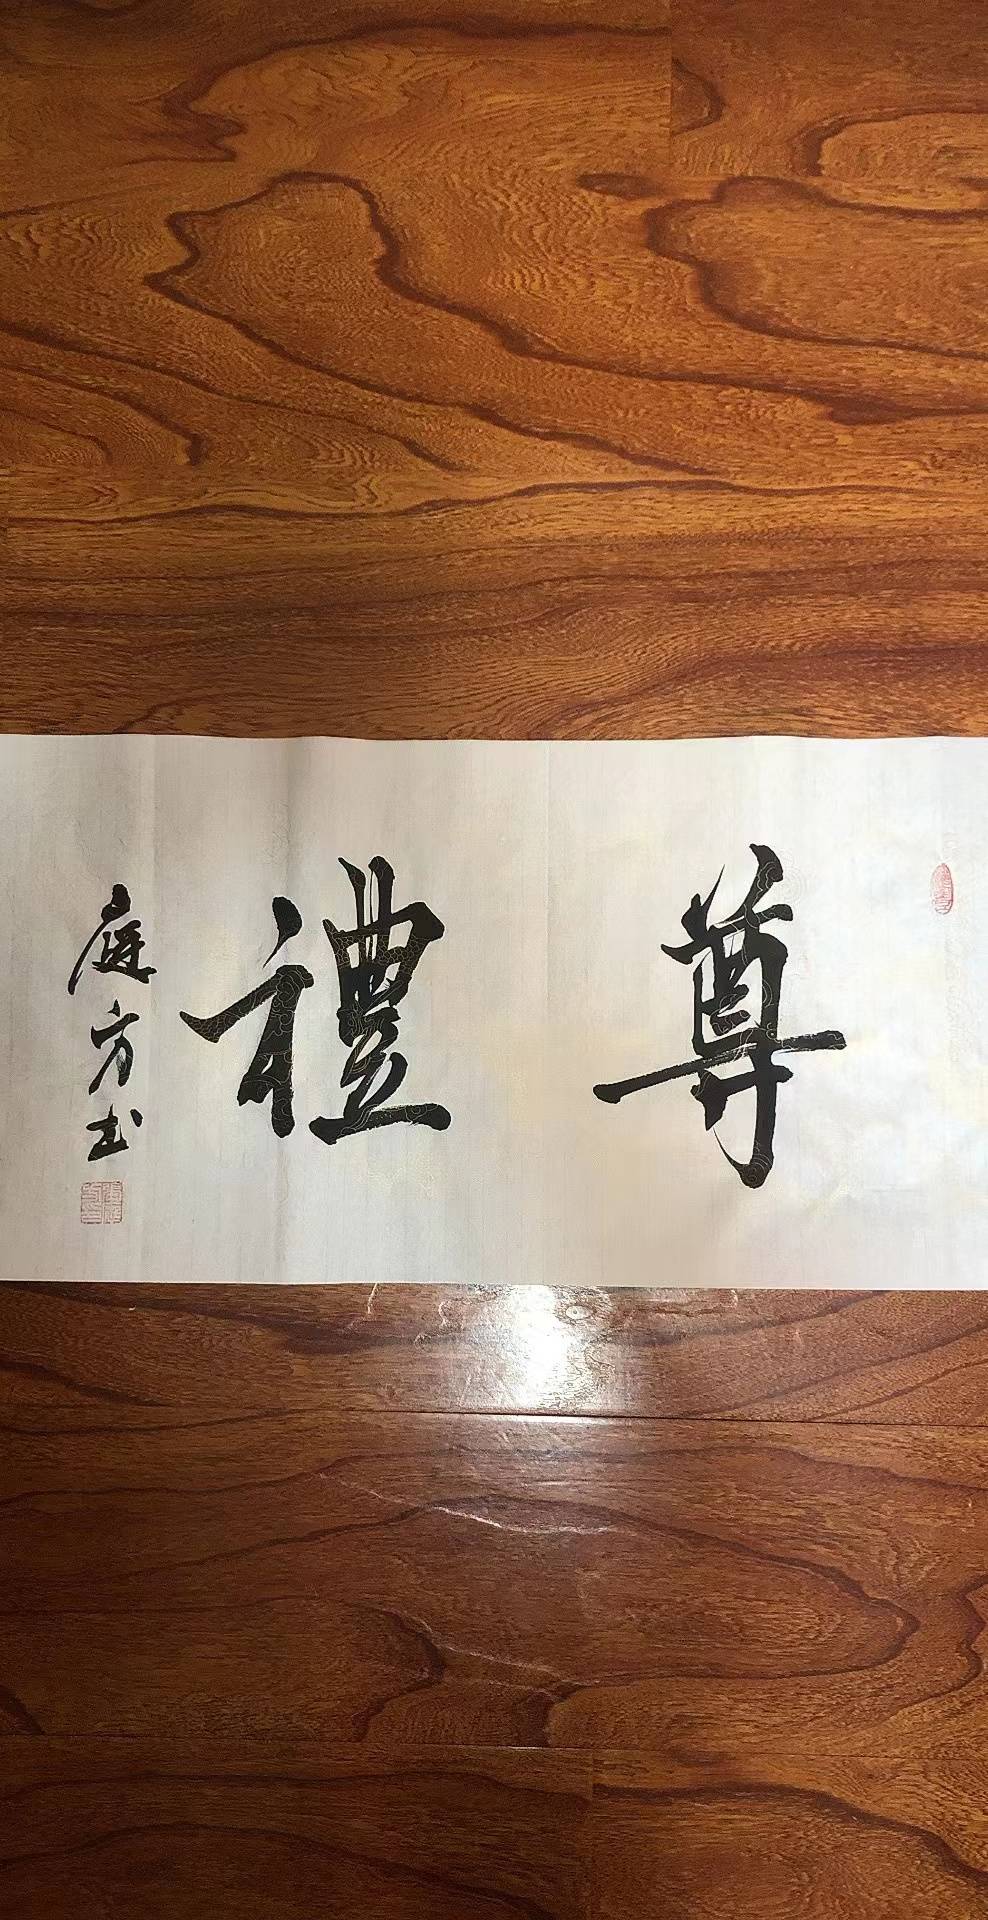 尊禮
庭方书